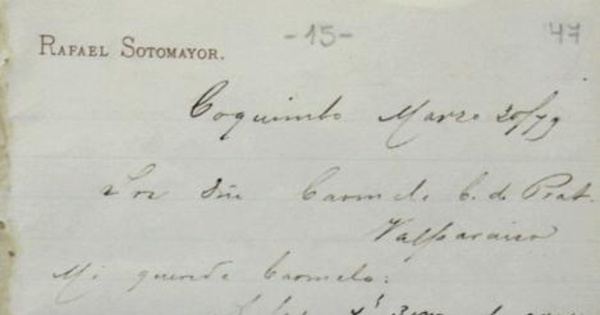 -15-
47
RAFAEL SOTOMAYOR.
Coquimbo Marzo 20/79
Carmela C. de Prat.
Valparaiso
Mi querida Carmela: